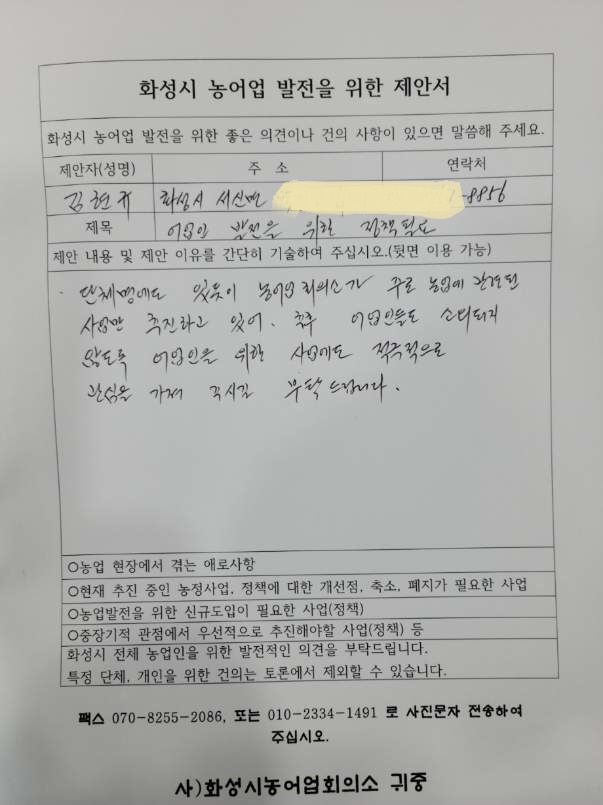 화성시 농어업 발전을 위한 제안서
화성시 농어업 발전을 위한 좋은 의견이나 건의 사항이 있으면 말씀해 주세요.
제안자(성명) 주 소 연락처
김현규 화성시 서신면 -8856
제목 어업인 발전을 위한 정책필요
제안 내용 및 제안 이유를 간단히 기술하여 주십시오.(뒷면 이용 가능)
· 단체명에도 있듯이 농어업회의소가 주로 농업에 관련된
사업만 추진하고 있어. 향후 어업인들도 소외되지
않도록 어업인을 위한 사업에도 적극적으로
관심을 가져 주시길 부탁드립니다.
○농업 현장에서 겪는 애로사항
○현재 추진 중인 농정사업, 정책에 대한 개선점, 축소, 폐지가 필요한 사업
○농업발전을 위한 신규도입이 필요한 사업(정책)
○중장기적 관점에서 우선적으로 추진해야할 사업(정책) 등
화성시 전체 농업인을 위한 발전적인 의견을 부탁드립니다.
특정 단체, 개인을 위한 건의는 토론에서 제외할 수 있습니다.
팩스 070-8255-2086, 또는 010-2334-1491 로 사진문자 전송하여
주십시오.
사)화성시농어업회의소 귀중